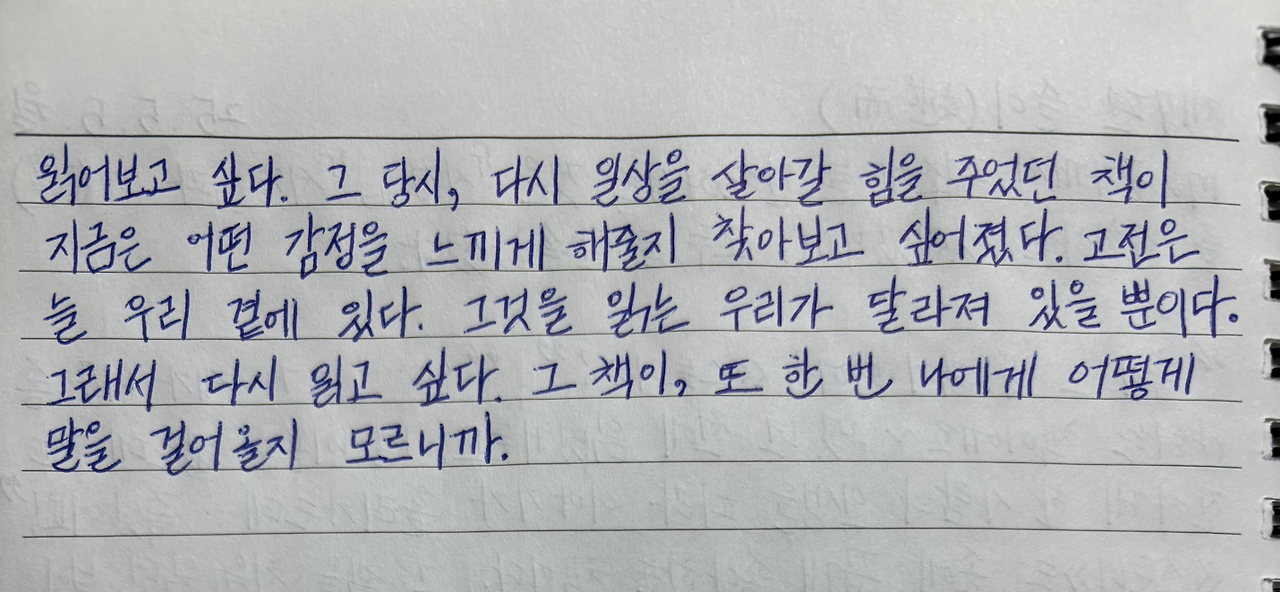 읽어보고 싶다. 그 당시, 다시 일상을 살아갈 힘을 주었던 책이
지금은 어떤 감정을 느끼게 해줄지 찾아보고 싶어졌다. 고전은
늘 우리 곁에 있다. 그것을 읽는 우리가 달라져 있을 뿐이다.
그래서 다시 읽고 싶다. 그 책이, 또 한 번 나에게 어떻게
말을 걸어올지 모르니까.